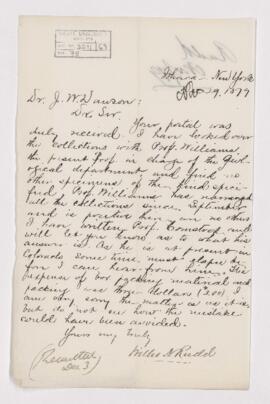 Ithaca - New York
Nov 29, 1879
Dr. J. W. Dawson:
Dr. Sir.
Your postal was
duly received. I have looked over
the collections with Prof. Williams
the present Prof. in charge of the Geol-
ogical department and find no
other specimens of the kind speci-
fied. Prof. Williams has
all the collections since September
and is positive there are no others
I have written Prof. Comstock and
will let you know as to what his
answer is. As he is at present in
Colorado some time must elapse be-
fore I can hear from him. The
expense of box packing material and
packing was three dollars
am very sorry the matter is as it is
but do not see how the mistake
could have been avoided.
Yours very truly
Willis N. Rudd
Dec 3